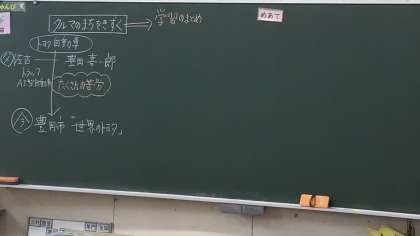 クルマのまちをきずく
学習のまとめ
めあて
トヨタ自動車
豊田喜一郎
トラック
たくさんの苦労
今 豊田市「世界のトヨタ」